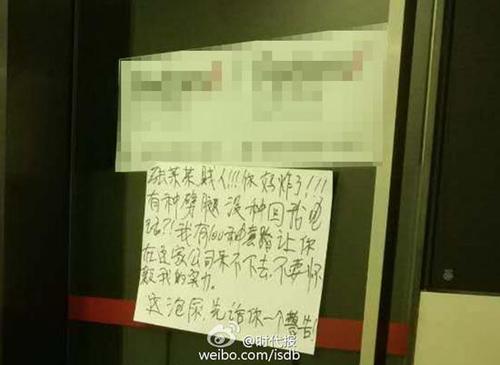 张某某贱人!!!你妈炸了!!!
有种劈腿没种回我电
话?!我有100种套路让你
在这家公司呆不下去,不要怀
疑我的实力.
这泡尿,先给你一个警告!
@时代报
weibo.com/isdb